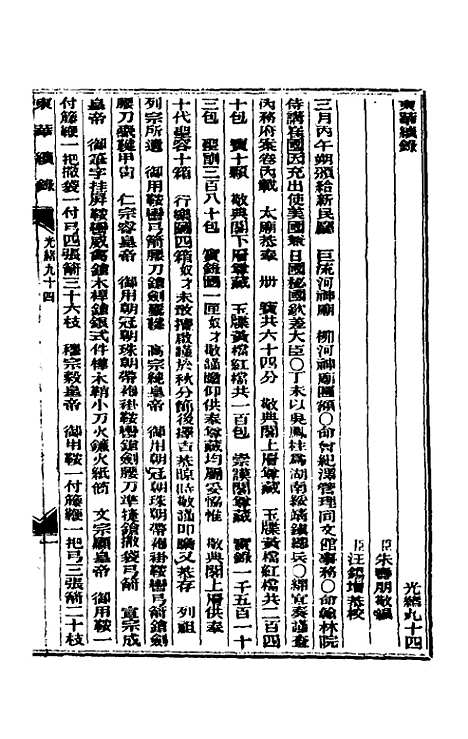 東華續錄
光緒九十四
臣朱壽朋敬編
臣汪鍚增恭校
三月丙午朔頒給新民廳 巨流河神廟 柳河神廟匾額〇命曾紀澤管理同文館事務〇命翰林院
侍講崔國因充出使美國兼日國秘國欽差大臣〇丁未以吳鳳柱為湖南綏靖鎮總兵〇繼宜奏謹查
內務府案卷內載 太廟恭奉 冊 寶共六十四分 敬典閣上層尊藏 玉牒黃檔紅檔共二百四
十包 寶十顆 敬典閣下層尊藏 玉牒黃檔紅檔共一百包 崇謨閣尊藏 實錄一千五百一十
三包 聖訓三百八十包 實錄圖一匣奴才敬謹瞻仰供奉尊藏均屬妥協惟 敬典閣上層供奉
十代聖容十箱 行樂圖四箱奴才未敢擅啟謹於秋分節後擇吉恭晾時敬謹叩瞻又恭存 列祖
列宗所遺 御用鞍轡弓箭腰刀鎗劍櫜鞬 高宗純皇帝 御用朝冠朝珠朝帶袍褂鞍轡弓箭鎗劍
腰刀櫜鞬甲冑 仁宗睿皇帝 御用朝冠朝珠朝帶袍褂鞍轡鎗劍腰刀準捷鎗撒袋弓箭 宣宗成
皇帝 御筆字挂屏鞍轡威遠鎗木桿鎗銀式件樺木鞘小刀火鐮火紙筒 文宗顯皇帝 御用鞍一
付籐鞭一把撒袋一付弓四張箭三十六枝 穆宗毅皇帝 御用鞍一付籐鞭一把弓三張箭二十枝
東華續錄
光緒九十四
一